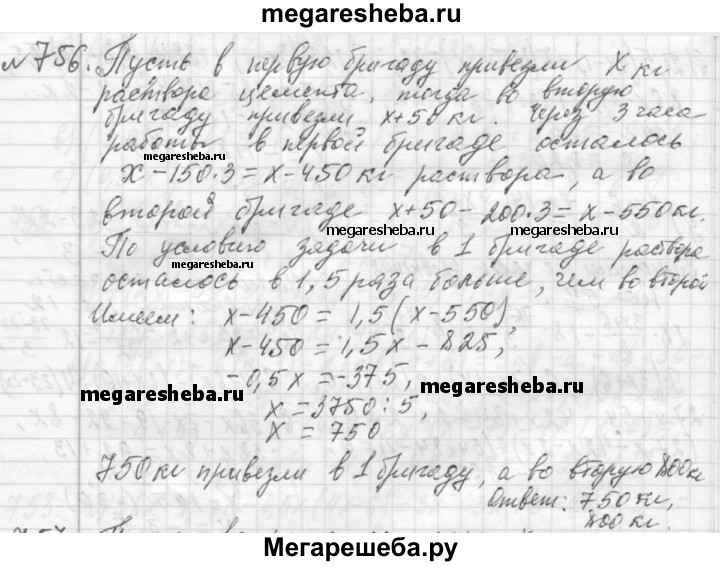 megaresheba.ru
№756. Пусть в первую бригаду привезли x кг
раствора цемента, тогда во вторую
бригаду привезли x+50 кг. Через 3 часа
работы в первой бригаде осталось
megaresheba.ru
x-150·3=x-450 кг раствора, а во
megaresheba.ru
второй бригаде x+50-200·3=x-550 кг.
megaresheba.ru megaresheba.ru
По условию задачи в 1 бригаде раствора
осталось в 1,5 раза больше, чем во второй
Имеем: x-450=1,5(x-550),
x-450=1,5x-825,
-0,5x=-375,
megaresheba.ru megaresheba.ru
x=3750:5,
x=750
750 кг привезли в 1 бригаду, а во вторую 800 кг
Ответ: 750 кг,
800 кг.
Мегарешеба.ру